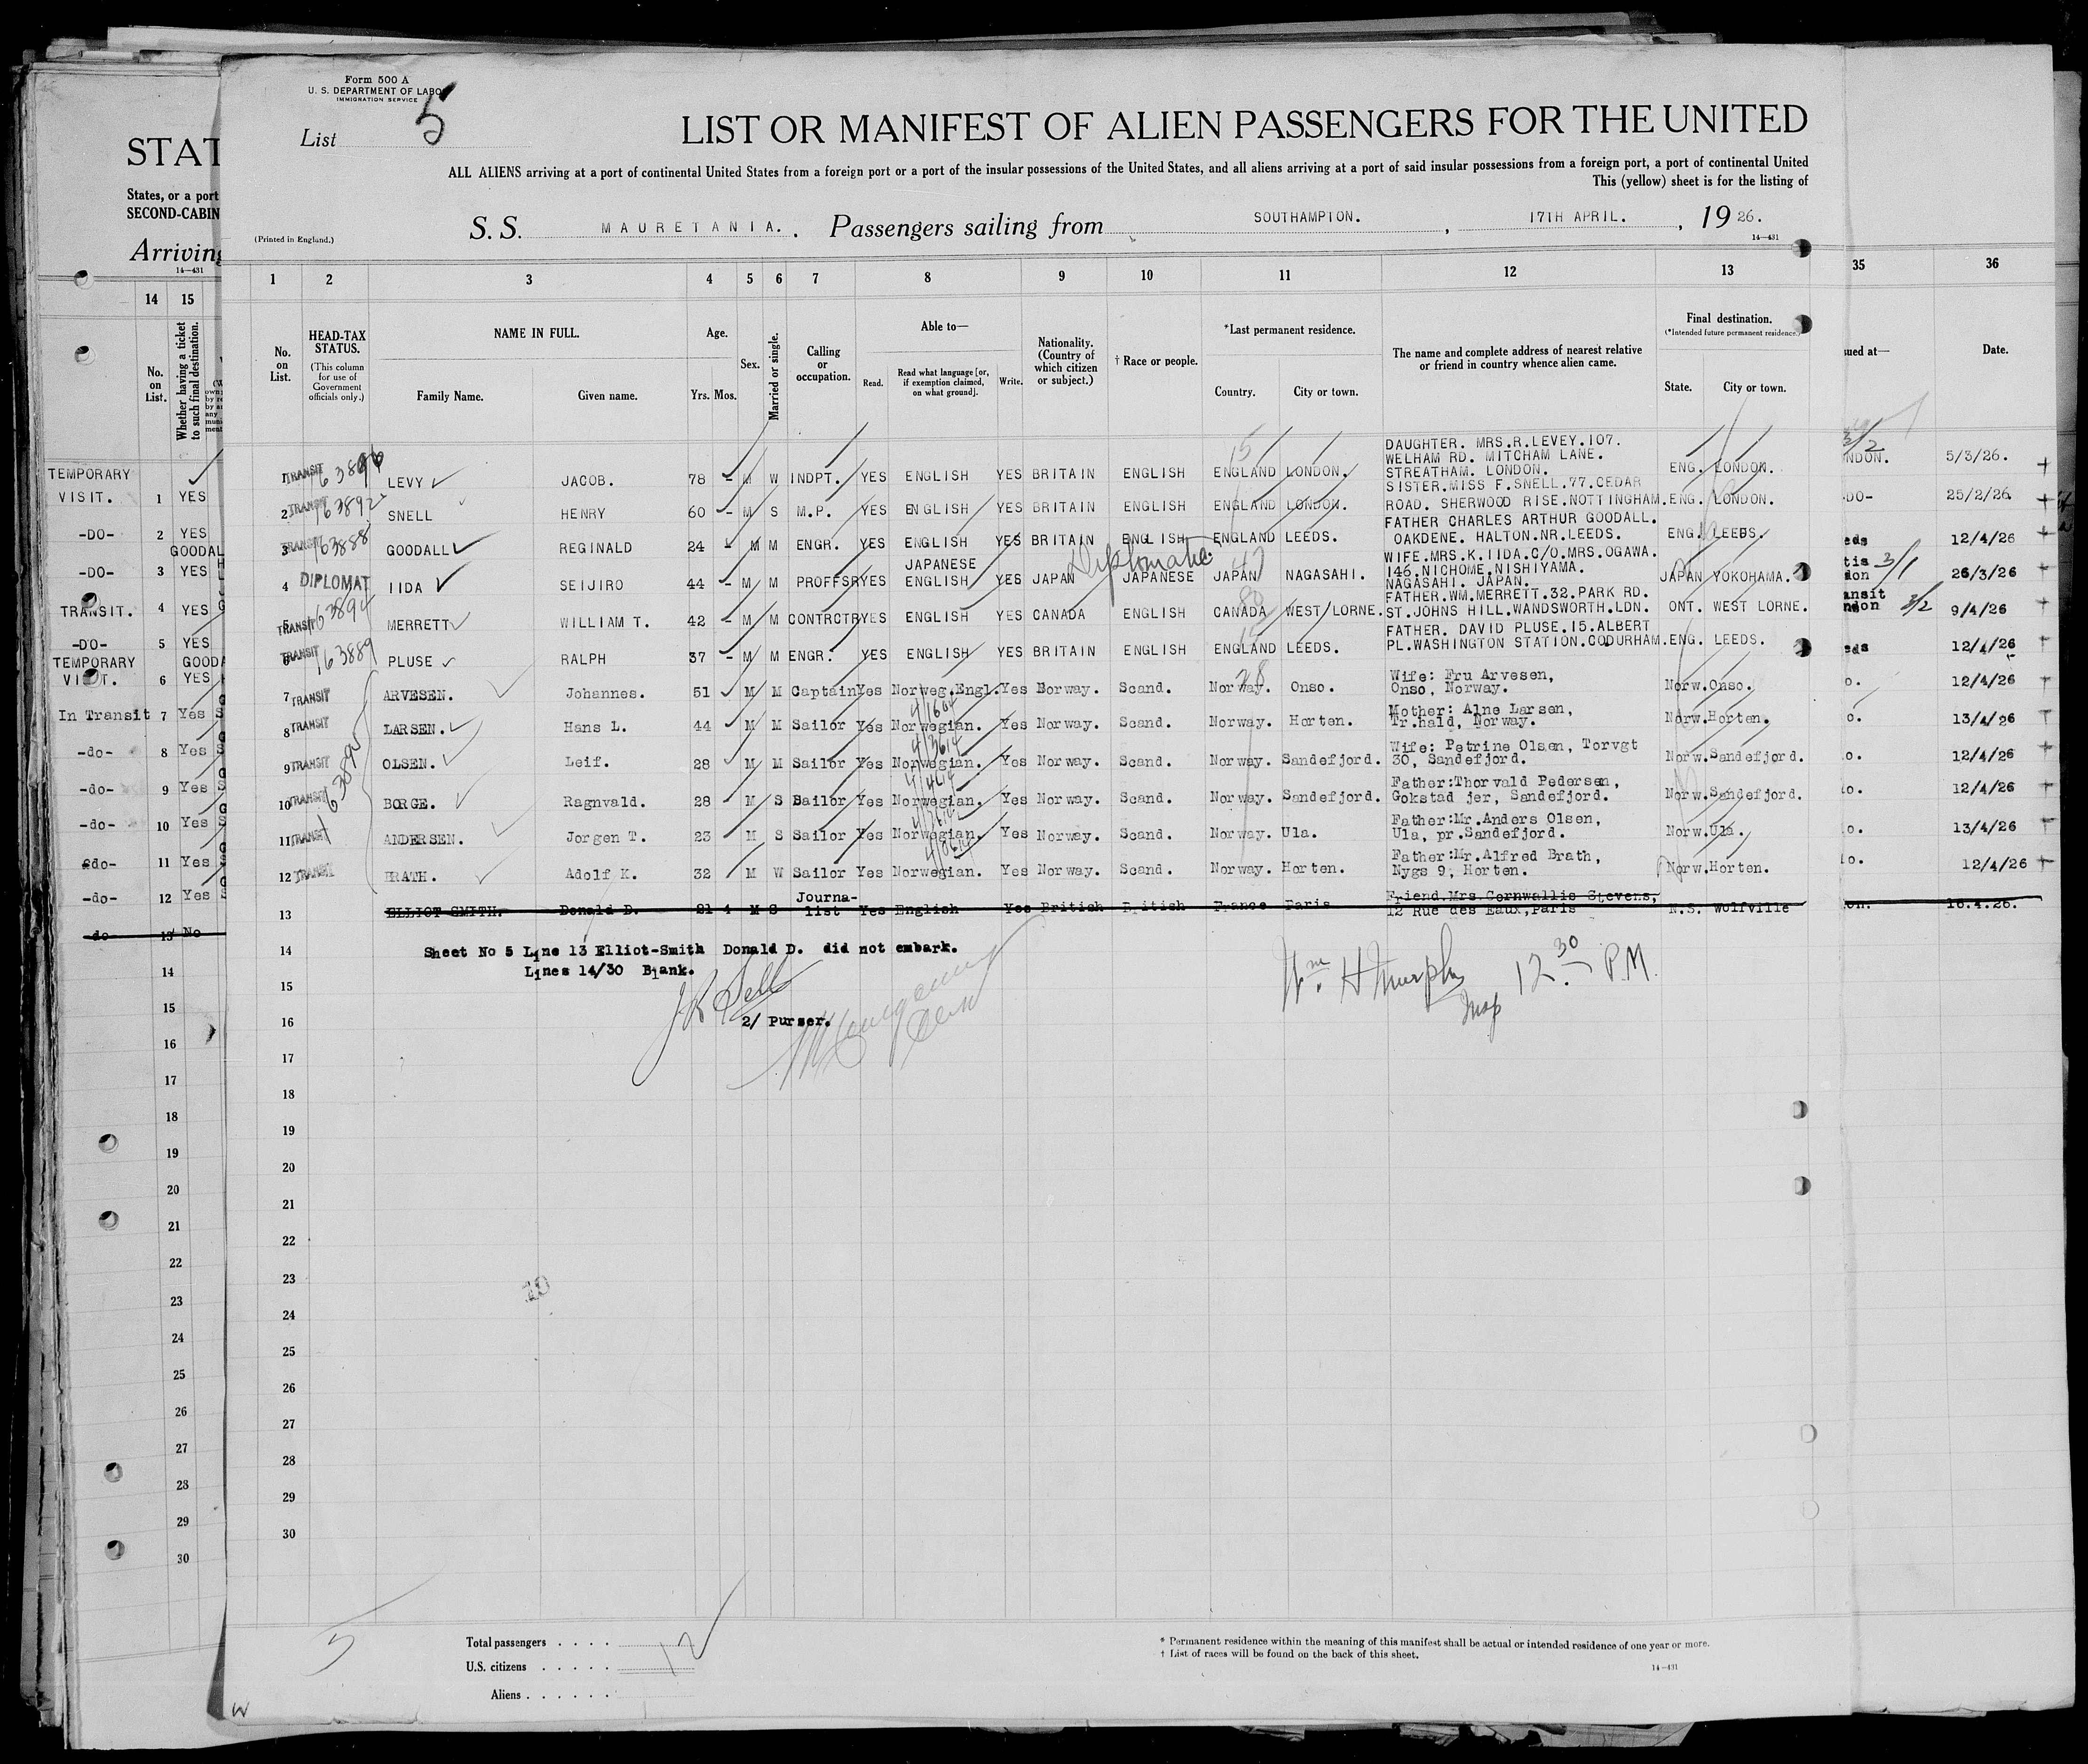 Form 500 A
U. S. DEPARTMENT OF LABO
IMMIGRATION SERVICE
List 5
LIST OR MANIFEST OF ALIEN PASSENGERS FOR THE UNITED
ALL ALIENS arriving at a port of continental United States from a foreign port or a port of the insular possessions of the United States, and all aliens arriving at a port of said insular possessions from a foreign port, a port of continental United
This (yellow) sheet is for the listing of
S. S. MAURETANIA. Passengers sailing from SOUTHAMPTON. , 17TH APRIL. , 19 26.
(Printed in England.)
14—431
STAT
States, or a port
SECOND-CABIN
Arriving
14—431
1 2 3 4 5 6 7 8 9 10 11 12 13
14 15
35 36
No. on List.
HEAD-TAX STATUS.
(This column for use of Government officials only.)
NAME IN FULL.
Family Name. Given name.
Age.
Yrs. Mos.
Sex.
Married or single.
Calling or occupation.
Able to—
Read. Read what language [or, if exemption claimed, on what ground]. Write.
Nationality. (Country of which citizen or subject.)
† Race or people.
*Last permanent residence.
Country. City or town.
The name and complete address of nearest relative or friend in country whence alien came.
Final destination.
(*Intended future permanent residence.)
State. City or town.
No. on List.
Whether having a ticket to such final destination.
sued at—
Date.
1 TRANSIT LEVY JACOB. 78 - M W INDPT. YES ENGLISH YES BRITAIN ENGLISH ENGLAND LONDON. DAUGHTER. MRS.R.LEVEY.107. WELHAM RD. MITCHAM LANE. STREATHAM. LONDON. ENG. LONDON.
2 TRANSIT 163892 SNELL HENRY 60 - M S M.P. YES ENGLISH YES BRITAIN ENGLISH ENGLAND LONDON. SISTER.MISS F.SNELL.77.CEDAR ROAD. SHERWOOD RISE.NOTTINGHAM. ENG. LONDON.
3 TRANSIT 163888 GOODALL REGINALD 24 - M M ENGR. YES ENGLISH YES BRITAIN ENGLISH ENGLAND LEEDS. FATHER CHARLES ARTHUR GOODALL. OAKDENE. HALTON.NR.LEEDS. ENG. LEEDS.
4 DIPLOMAT IIDA SEIJIRO 44 - M M PROFFSR YES JAPANESE ENGLISH YES JAPAN Diplomatic JAPANESE JAPAN NAGASAHI. WIFE.MRS.K.IIDA.C/O.MRS.OGAWA. 146.NICHOME.NISHIYAMA. NAGASAHI. JAPAN. JAPAN YOKOHAMA.
5 TRANSIT 163894 MERRETT WILLIAM T. 42 - M M CONTRCTR YES ENGLISH YES CANADA ENGLISH CANADA WEST LORNE. FATHER.WM.MERRETT.32.PARK RD. ST.JOHNS HILL.WANDSWORTH.LDN. ONT. WEST LORNE.
6 TRANSIT 163889 PLUSE RALPH 37 - M M ENGR. YES ENGLISH YES BRITAIN ENGLISH ENGLAND LEEDS. FATHER. DAVID PLUSE.15.ALBERT PL.WASHINGTON STATION.CODURHAM. ENG. LEEDS.
7 TRANSIT ARVESEN. Johannes. 51 M M Captain Yes Norweg.Engl. Yes Norway. Scand. Norway. Onso. Wife: Fru Arvesen, Onso, Norway. Norw. Onso.
8 TRANSIT LARSEN. Hans L. 44 M M Sailor Yes Norwegian. Yes Norway. Scand. Norway. Horten. Mother: Alne Larsen, Tr.hald, Norway. Norw. Horten.
9 TRANSIT OLSEN. Leif. 28 M M Sailor Yes Norwegian. Yes Norway. Scand. Norway. Sandefjord. Wife: Petrine Olsen, Torvgt 30, Sandefjord. Norw. Sandefjord.
10 TRANSIT BORGE. Ragnvald. 28 M S Sailor Yes Norwegian. Yes Norway. Scand. Norway. Sandefjord. Father:Thorvald Pedersen, Gokstad jer, Sandefjord. Norw. Sandefjord.
11 TRANSIT ANDERSEN. Jorgen T. 23 M S Sailor Yes Norwegian. Yes Norway. Scand. Norway. Ula. Father:Mr.Anders Olsen, Ula, pr.Sandefjord. Norw. Ula.
12 TRANSIT BRATH. Adolf K. 32 M W Sailor Yes Norwegian. Yes Norway. Scand. Norway. Horten. Father:Mr.Alfred Brath, Nygs 9, Horten. Norw. Horten.
13 ELLIOT SMITH. Donald D. 21 4 M S Journa-list Yes English Yes British British France Paris Friend.Mrs Cornwallis Stevens, 12 Rue des Eaux,Paris N.S. Wolfville
14 Sheet No 5 Line 13 Elliot-Smith Donald D. did not embark.
Lines 14/30 Blank.
15
16 2/ Purser.
Wm. H Murphy Insp 12 30 P.M.
17
18
19
20
21
22
23
24
25
26
27
28
29
30
TEMPORARY VISIT. 1 YES
-DO- 2 YES
GOODAL
-DO- 3 YES
TRANSIT. 4 YES
-DO- 5 YES
TEMPORARY VISIT. 6 YES
GOODA
In Transit 7 Yes
-do- 8 Yes
-do- 9 Yes
-do- 10 Yes
-do- 11 Yes
-do- 12 Yes
-do- 13 No
14
15
16
17
18
19
20
21
22
23
24
25
26
27
28
29
30
NDON. 5/3/26.
-DO- 25/2/26
eds 12/4/26
tis don 3/1 26/3/26
ansit ndon 3/2 9/4/26
eds 12/4/26
o. 12/4/26
o. 13/4/26
o. 12/4/26
o. 12/4/26
o. 13/4/26
o. 12/4/26
on. 16.4.26.
Total passengers . . . . 12
U.S. citizens . . . . .
Aliens . . . . . .
* Permanent residence within the meaning of this manifest shall be actual or intended residence of one year or more.
† List of races will be found on the back of this sheet.
14—431